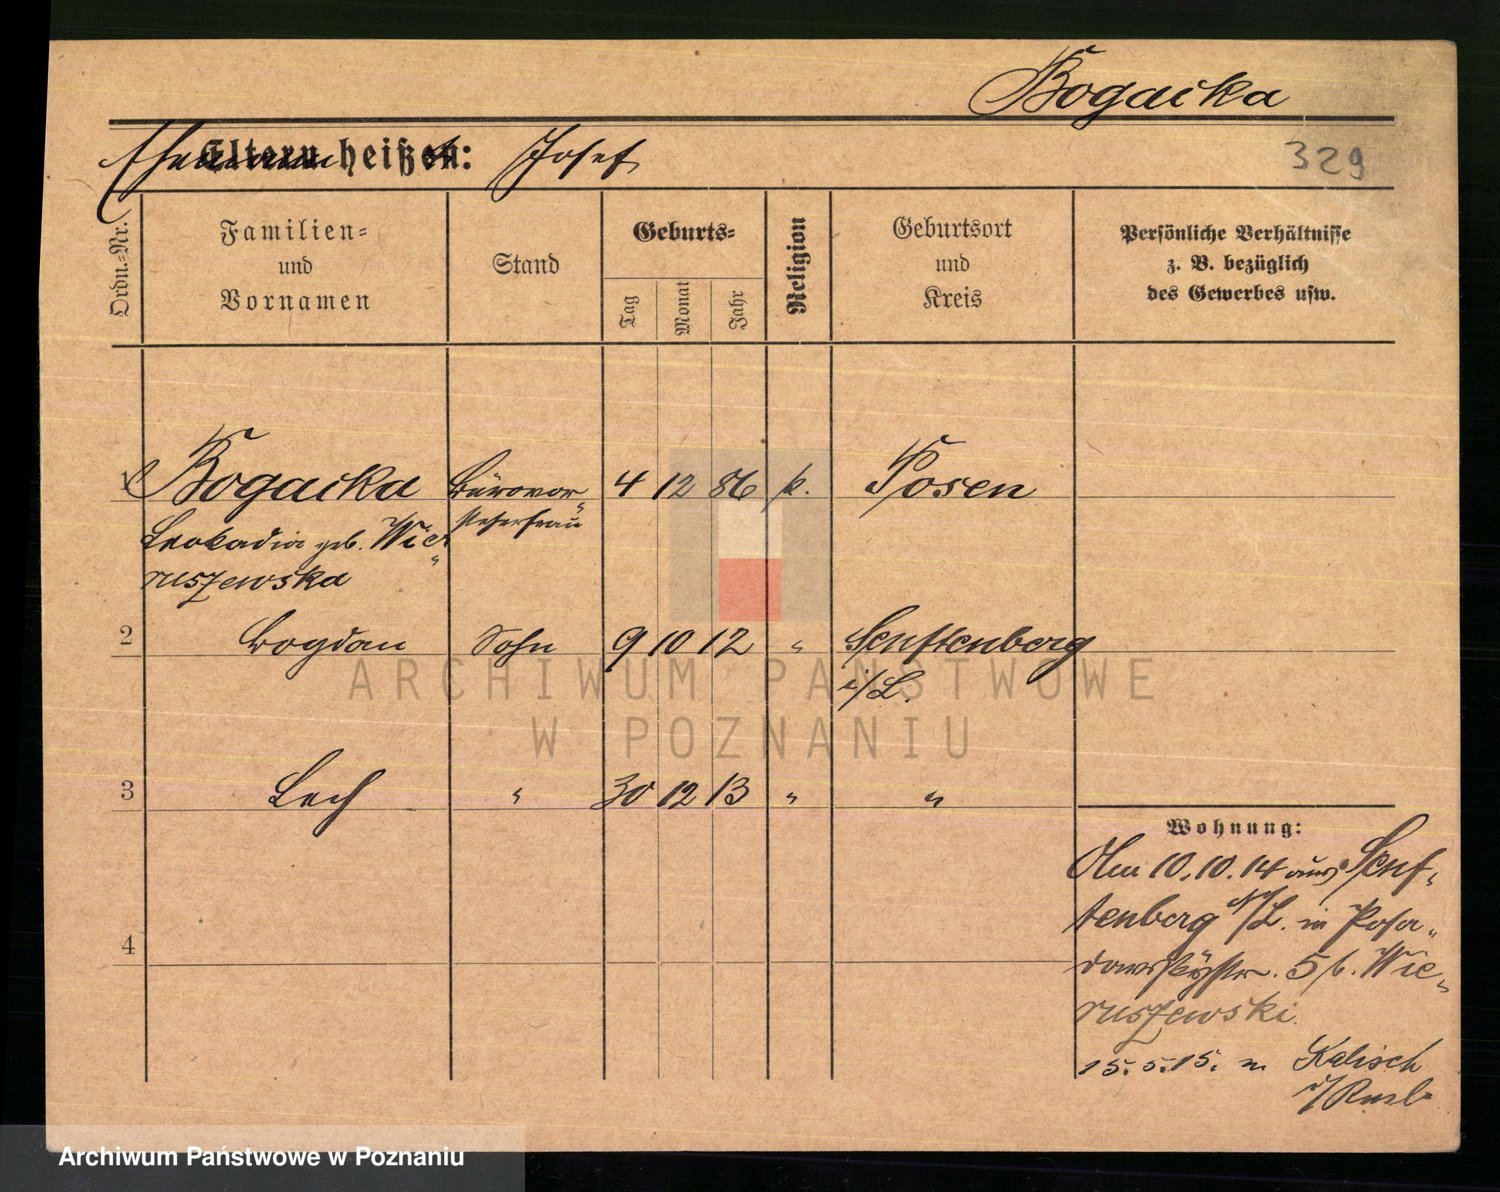 Bogacka
329
Ehemann
Eltern heißen: Josef
Ordn.-Nr.
Familien-
und
Vornamen
Stand
Geburts-
Tag
Monat
Jahr
Religion
Geburtsort
und
Kreis
Persönliche Verhältnisse
z. B. bezüglich
des Gewerbes usw.
1 Bogacka Bürovor- 4 12 86 k. Posen
steherfrau
Leokadia geb. Wie-
ruszewska
2 Bogdan Sohn 9 10 12 " Senftenberg
i/L.
3 Lech " 30 12 13 " "
4
Wohnung:
Am 10.10.14 aus Senf-
tenberg N/L. in Posa-
dowskystr. 5 b. Wie-
ruszewski.
15.5.15. n. Kalisch
i/Rußl.
ARCHIWUM PAŃSTWOWE
W POZNANIU
Archiwum Państwowe w Poznaniu